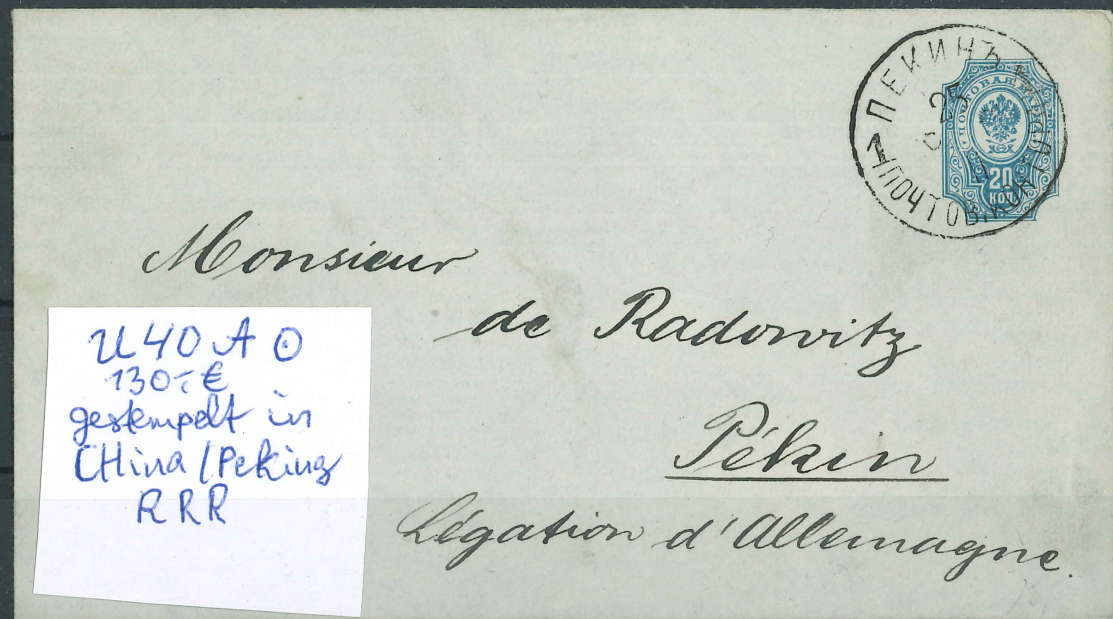 ПЕКИНЪ
25
ПОЧТОВ. КОН
ПОЧТОВАЯ МАРКА
20
КОП.
Monsieur
de Radowitz
Pékin
Légation d'Allemagne.
U 40 A ⊙
130,- €
gestempelt in
CHina / Peking
RRR